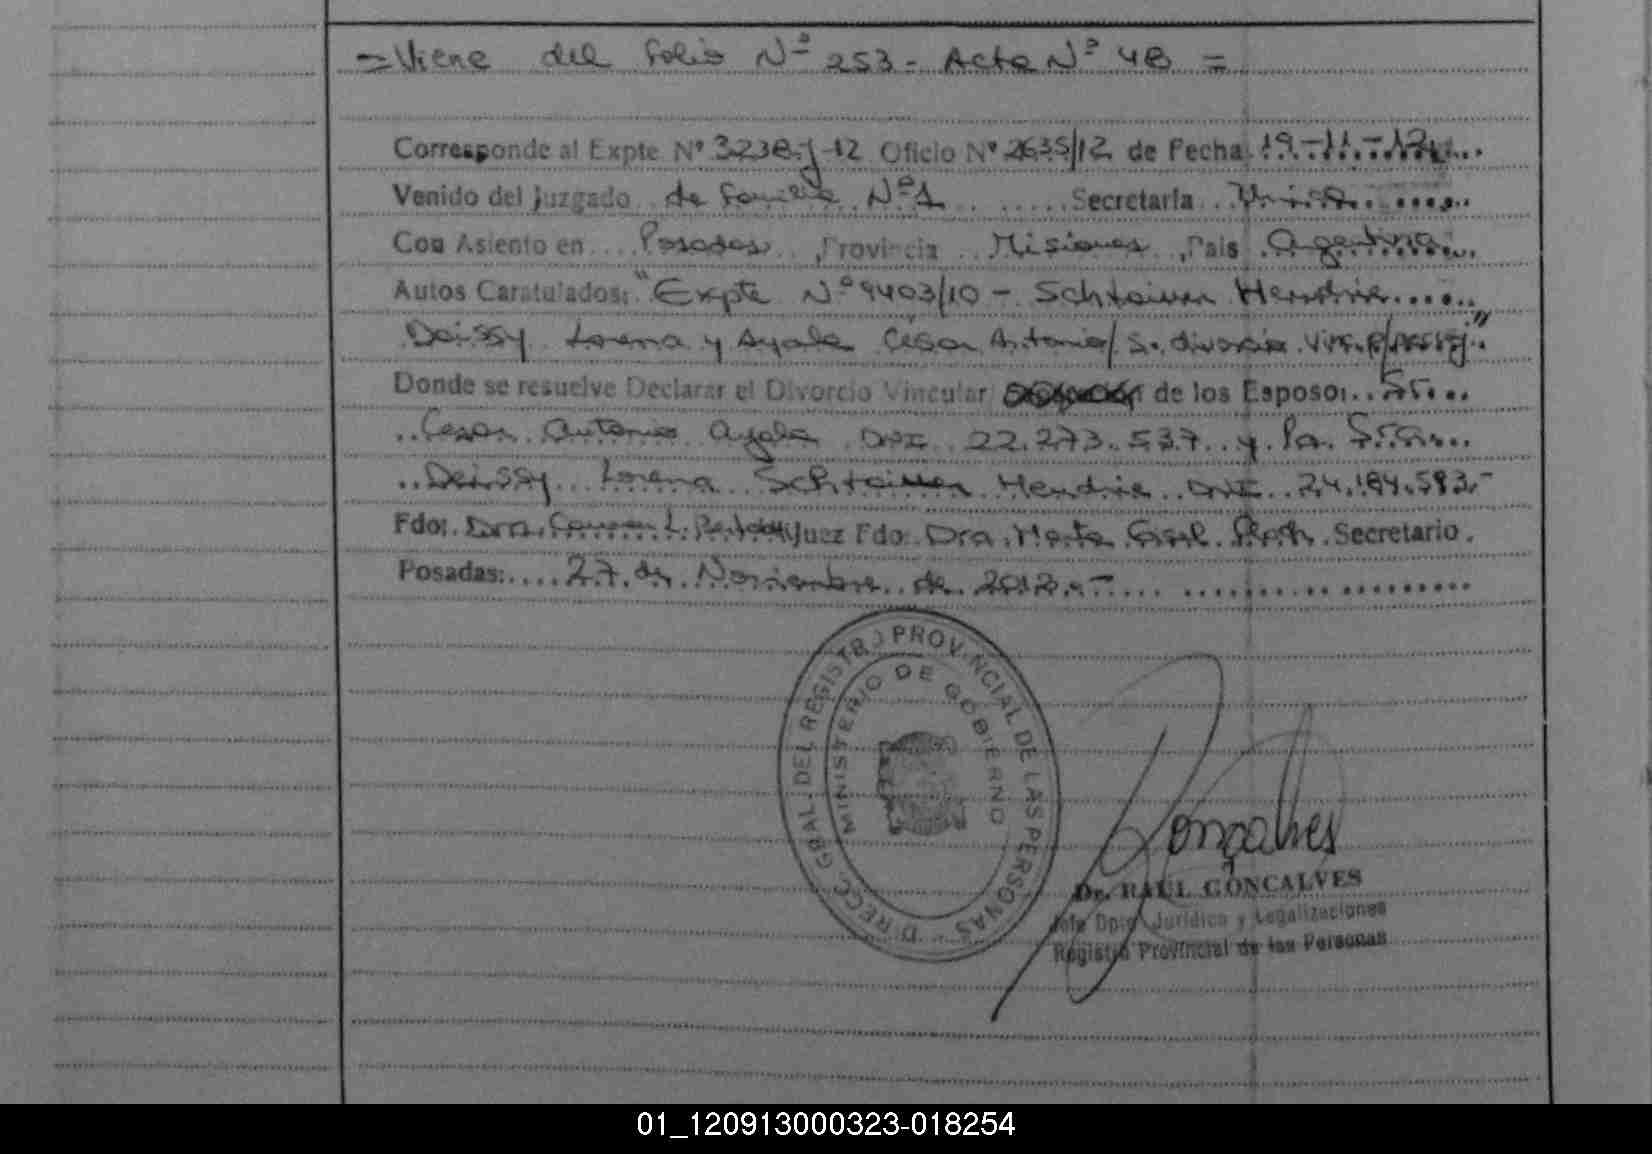 = Viene del folio Nº 253 - Acta Nº 48 =
Corresponde al Expte Nº 3238-J-12 Oficio Nº 2635/12 de Fecha 19-11-12
Venido del Juzgado de Familia Nº 1 Secretaria Unica
Con Asiento en Posadas, Provincia Misiones, Pais Argentina
Autos Caratulados: "Expte Nº 9403/10 - Schtaiver Hendrie
Deissy Lorena y Ayala César Antonio/ S. divorcio
Donde se resuelve Declarar el Divorcio Vincular de los Esposos: Sr.
Cesar Antonio Ayala DNI 22.273.537 y la Sra.
Deissy Lorena Schtaiver Hendrie DNI 24.184.593.-
Fdo: Dra. Carmen L. Juez Fdo: Dra. Marta Secretario.
Posadas: 27 de Noviembre de 2012.-
DIRECC. GRAL. DEL REGISTRO PROVINCIAL DE LAS PERSONAS -
MINISTERIO DE GOBIERNO
Gonçalves
Dr. RAUL GONCALVES
Jefe Dpto. Jurídico y Legalizaciones
Registro Provincial de las Personas
01_120913000323-018254